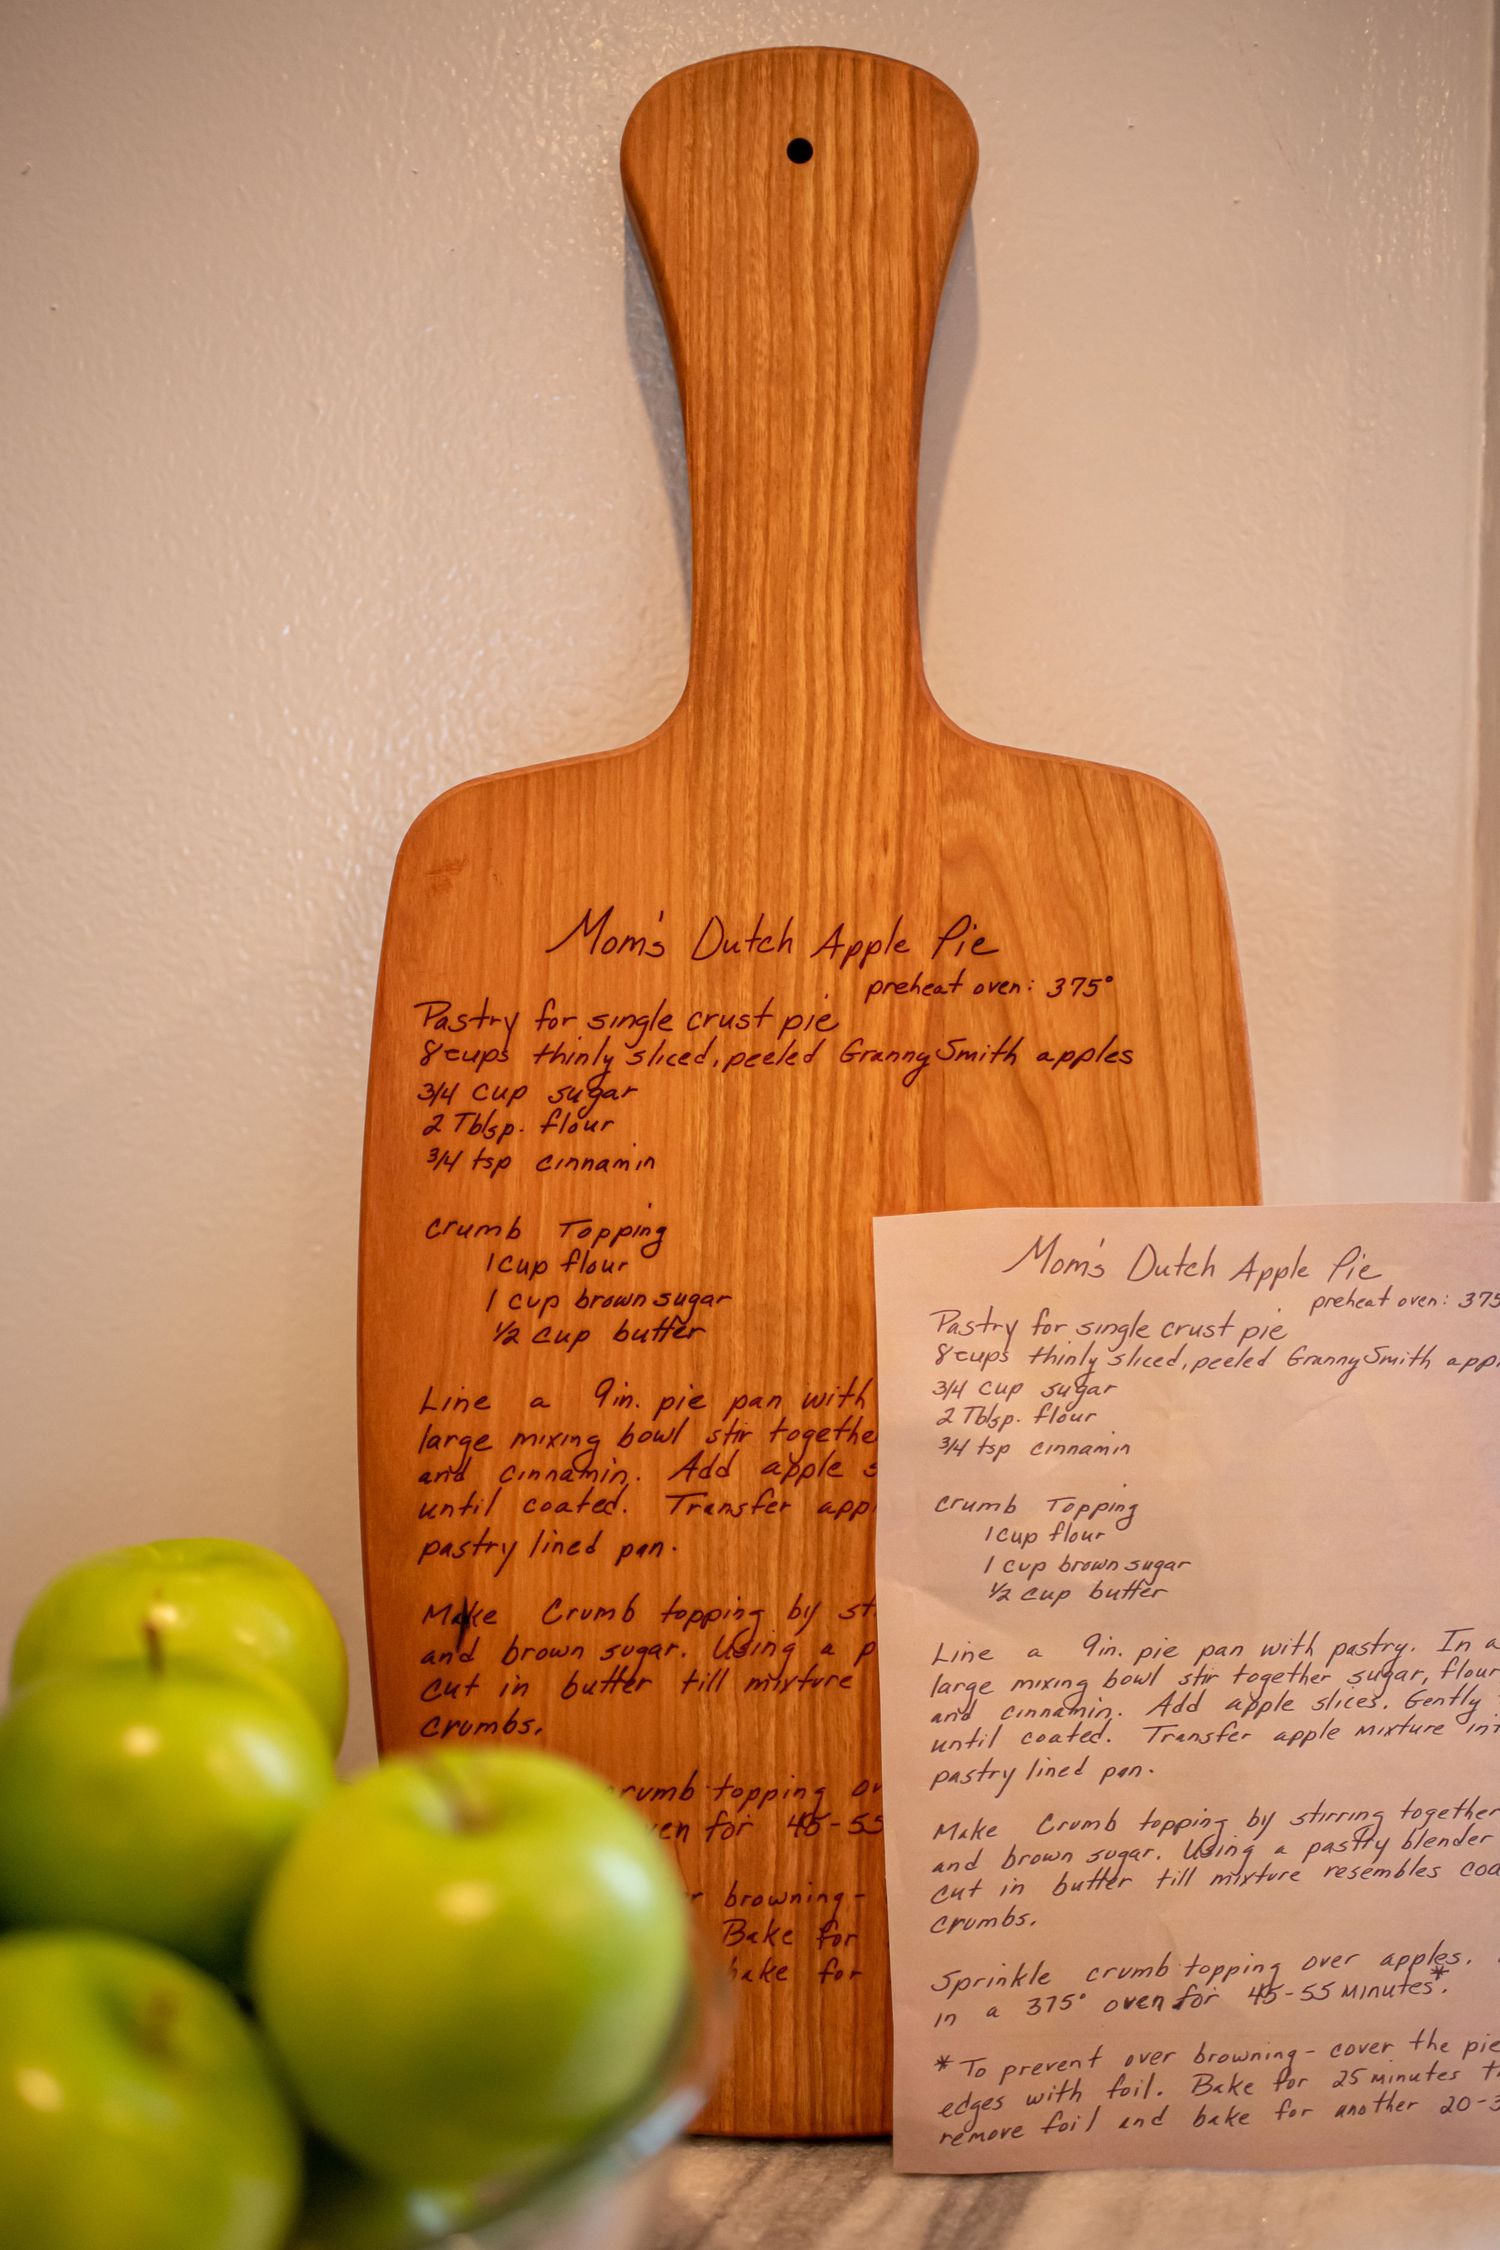 Mom's Dutch Apple Pie
preheat oven: 375°
Pastry for single crust pie
8 cups thinly sliced, peeled Granny Smith apples
3/4 cup sugar
2 Tblsp. flour
3/4 tsp cinnamin
Crumb Topping
1 cup flour
1 cup brown sugar
1/2 cup butter
Line a 9in. pie pan with
large mixing bowl stir togethe
and cinnamin. Add apple s
until coated. Transfer app
pastry lined pan.
Make Crumb topping by st
and brown sugar. Using a p
cut in butter till mixture
crumbs.
crumb topping ov
ven for 45-55
r browning-
Bake for
bake for
Mom's Dutch Apple Pie
preheat oven: 375
Pastry for single crust pie
8 cups thinly sliced, peeled Granny Smith app
3/4 cup sugar
2 Tblsp. flour
3/4 tsp cinnamin
Crumb Topping
1 cup flour
1 cup brown sugar
1/2 cup butter
Line a 9in. pie pan with pastry. In a
large mixing bowl stir together sugar, flour
and cinnamin. Add apple slices. Gently
until coated. Transfer apple mixture int
pastry lined pan.
Make Crumb topping by stirring together
and brown sugar. Using a pastry blender
cut in butter till mixture resembles coa
crumbs.
Sprinkle crumb topping over apples.
in a 375° oven for 45-55 minutes*.
*To prevent over browning- cover the pie
edges with foil. Bake for 25 minutes th
remove foil and bake for another 20-3